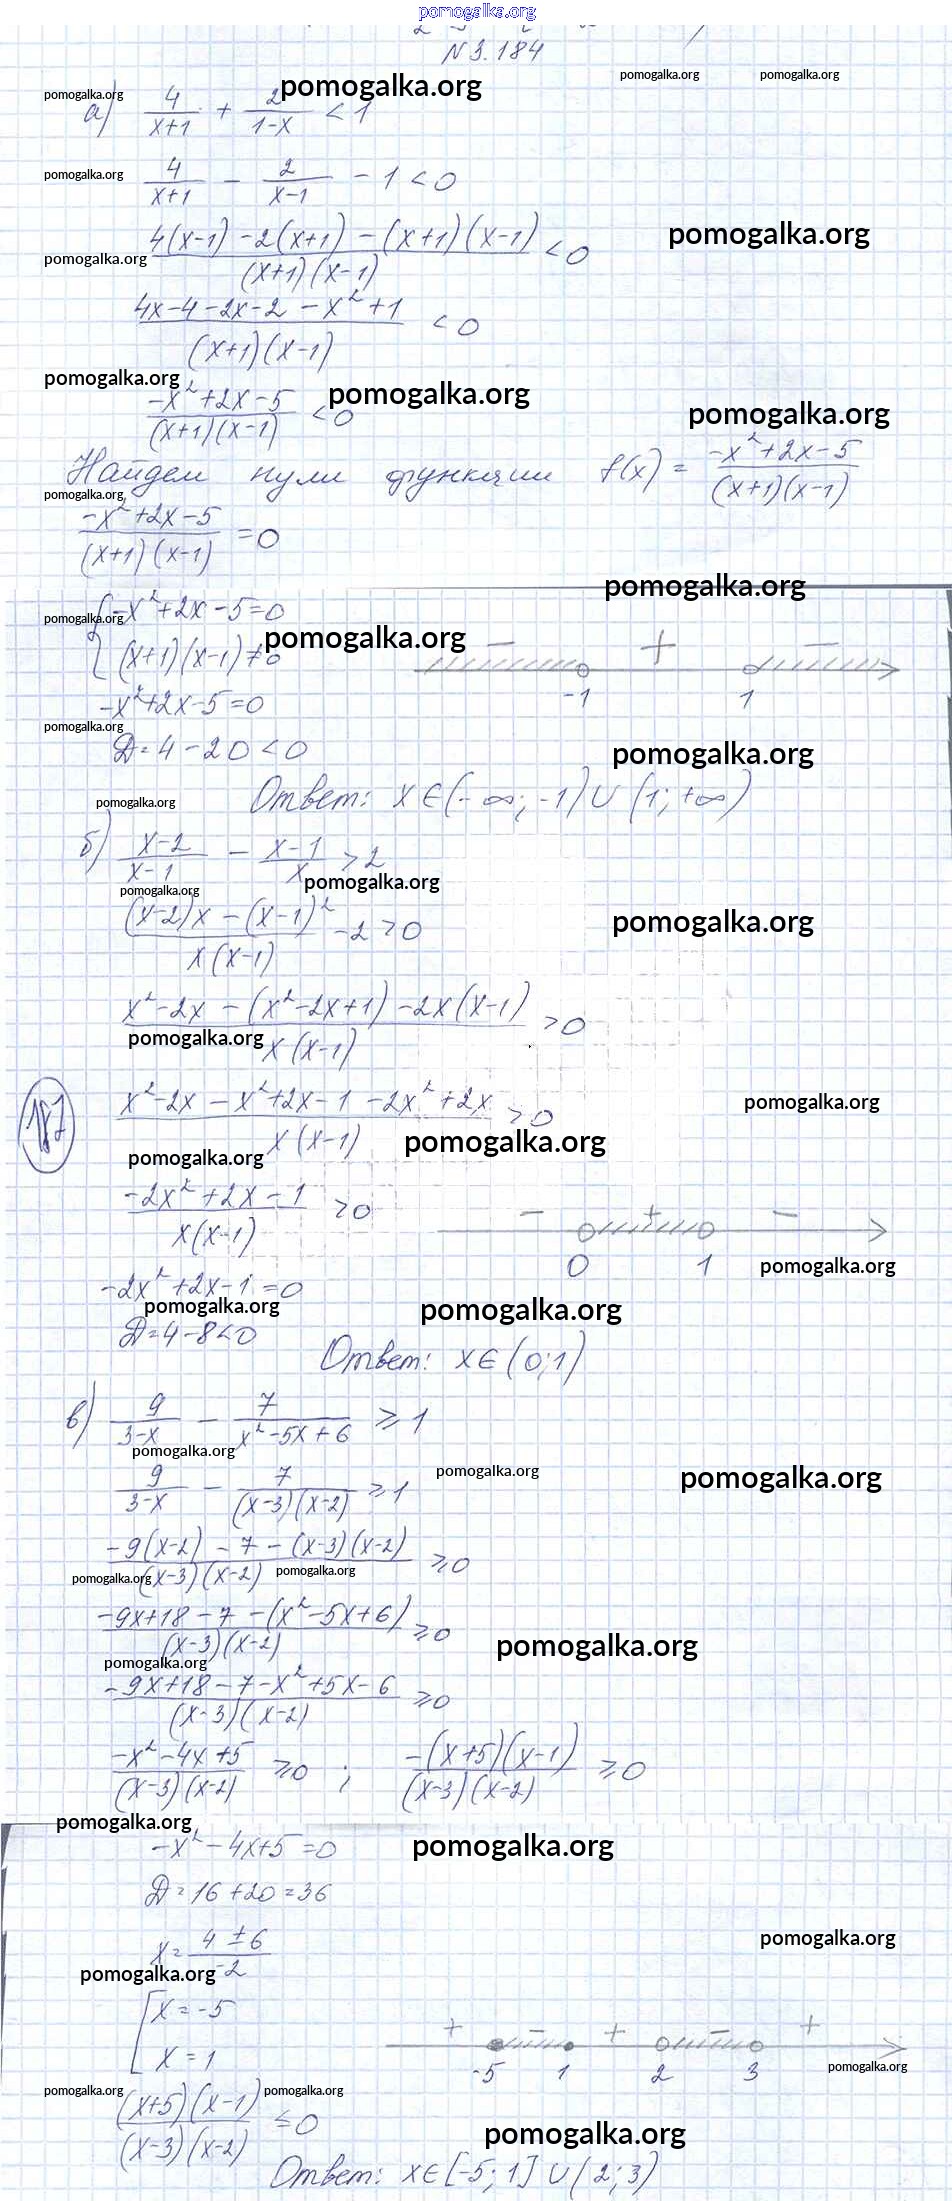 pomogalka.org
N 3.184
pomogalka.org pomogalka.org pomogalka.org pomogalka.org
а) 4/(x+1) + 2/(1-x) < 1
pomogalka.org 4/(x+1) - 2/(x-1) - 1 < 0
pomogalka.org
pomogalka.org (4(x-1) - 2(x+1) - (x+1)(x-1))/((x+1)(x-1)) < 0
(4x-4-2x-2-x²+1)/((x+1)(x-1)) < 0
pomogalka.org pomogalka.org pomogalka.org
(-x²+2x-5)/((x+1)(x-1)) < 0
Найдем нули функции f(x) = (-x²+2x-5)/((x+1)(x-1))
pomogalka.org
(-x²+2x-5)/((x+1)(x-1)) = 0
pomogalka.org
pomogalka.org { -x²+2x-5=0
pomogalka.org
(x+1)(x-1)≠0
- + -
-1 1
-x²+2x-5=0
pomogalka.org
Д=4-20<0
pomogalka.org
Ответ: x∈(-∞;-1)∪(1;+∞)
pomogalka.org
б) (x-2)/(x-1) - (x-1)/x > 2
pomogalka.org pomogalka.org
((x-2)x-(x-1)²)/(x(x-1)) -2>0
pomogalka.org
(x²-2x-(x²-2x+1)-2x(x-1))/(x(x-1)) >0
pomogalka.org
187
(x²-2x-x²+2x-1-2x²+2x)/(x(x-1)) >0
pomogalka.org
pomogalka.org pomogalka.org
(-2x²+2x-1)/(x(x-1)) >0
- + -
0 1
pomogalka.org
-2x²+2x-1=0
pomogalka.org pomogalka.org
Д=4-8<0
Ответ: x∈(0;1)
в) 9/(3-x) - 7/(x²-5x+6) ≥ 1
pomogalka.org
pomogalka.org pomogalka.org
9/(3-x) - 7/((x-3)(x-2)) ≥1
(-9(x-2)-7-(x-3)(x-2))/((x-3)(x-2)) ≥0
pomogalka.org pomogalka.org
(-9x+18-7-(x²-5x+6))/((x-3)(x-2)) ≥0
pomogalka.org
pomogalka.org
(-9x+18-7-x²+5x-6)/((x-3)(x-2)) ≥0
(-x²-4x+5)/((x-3)(x-2)) ≥0 ; (-(x+5)(x-1))/((x-3)(x-2)) ≥0
pomogalka.org
-x²-4x+5=0
pomogalka.org
Д=16+20=36
pomogalka.org
x=(4±6)/(-2)
pomogalka.org
[ x=-5
x=1
+ - + - +
-5 1 2 3
pomogalka.org
pomogalka.org pomogalka.org
((x+5)(x-1))/((x-3)(x-2)) ≤0
pomogalka.org
Ответ: x∈[-5;1]∪(2;3)